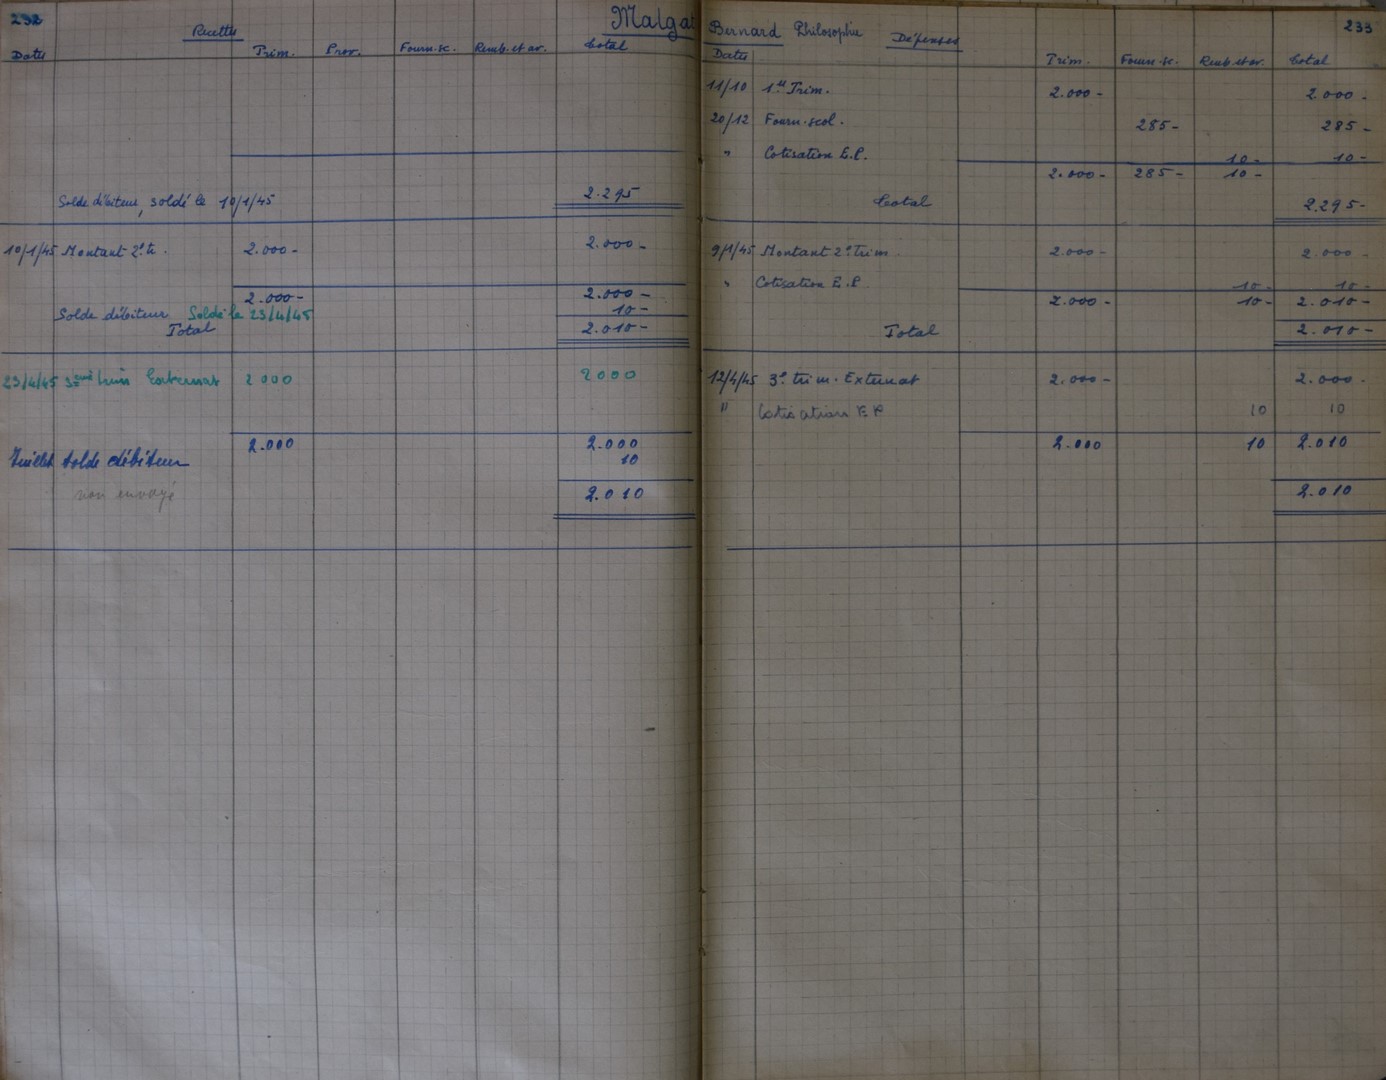 232
Recettes
Malgat
Dates Trim. Prov. Fourn. sc. Remb. et av. Total
Solde débiteur, soldé le 10/1/45 2.295
10/1/45 Montant 2e tr. 2.000- 2.000-
2.000- 2.000-
Solde débiteur Soldé le 23/4/45 10-
Total 2.010-
23/4/45 3eme trim Externat 2000 2000
2.000 2.000
Juillet solde débiteur 10
non envoyé 2.010
Bernard Philosophie Dépenses 233
Dates Trim. Fourn. sc. Remb. et av. Total
11/10 1er Trim. 2.000- 2.000-
20/12 Fourn. scol. 285- 285-
" Cotisation E.P. 10- 10-
2.000- 285- 10-
Total 2.295-
9/1/45 Montant 2e Trim 2.000- 2.000-
" Cotisation E.P. 10- 10-
2.000- 10- 2.010-
Total 2.010-
12/4/45 3e trim. Externat 2.000- 2.000-
" Cotisations EP 10 10
2.000 10 2.010
2.010